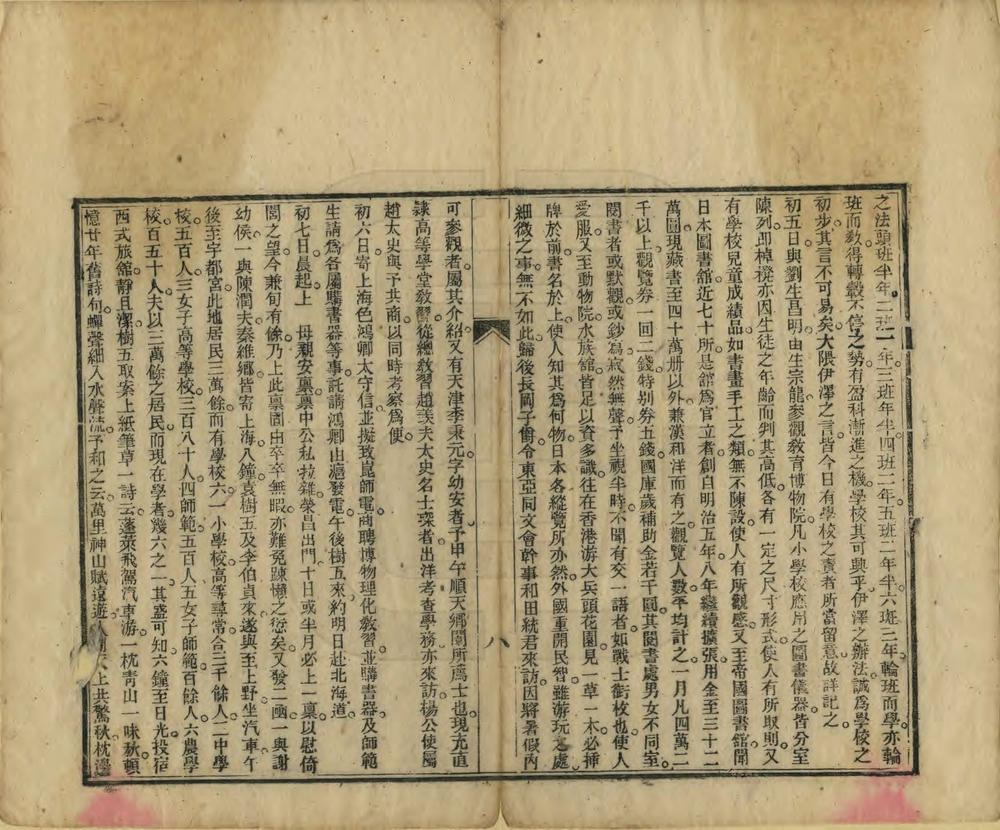 之法頭班半年二班一年三班年半四班二年五班二年半六班三年輪班而學亦輪
班而教得轉轂不停之勢有盈科漸進之機學校其可興乎伊澤之辦法誠爲學校之
初步其言不可易矣大隈伊澤之言皆今日有學校之責者所當留意故詳記之
初五日與劉生昌明由生宗龍參觀敎育博物院凡小學校應用之圖書儀器皆分室
陳列卽棹櫈亦因生徒之年齡而判其高低各有一定之尺寸形式使人有所取則又
有學校兒童成績品如書畫手工之類無不陳設使人有所觀感又至帝國圖書舘聞
日本圖書舘近七十所是舘爲官立者創自明治五年八年繼續擴張用金至三十二
萬圓現藏書至四十萬册以外兼漢和洋而有之觀覽人數平均計之一月凡四萬二
千以上觀覽券一回二錢特別券五錢國庫歲補助金若千圓其閱書處男女不同室
閱書者或默觀或鈔寫寂然無聲予坐視半時不聞有交一語者如戰士銜枚也使人
愛服又至動物院水族舘皆足以資多識往在香港游大兵頭花園見一草一木必揷
牌於前書名於上使人知其爲何物日本各縱覽所亦然外國重開民智雖游玩之處
細微之事無不如此歸後長岡子爵令東亞同文會幹事和田統君來訪因將暑假內
八
可參觀者屬其介紹又有天津李秉元字幼安者予甲午順天鄕闈所薦士也現充直
隸高等學堂敎習從總敎習趙芙夫太史名士琛者出洋考查學務亦來訪楊公使屬
趙太史與予共商以同時考察爲便
初六日寄上海色鴻卿太守信並擬致崑師電商聘博物理化敎習並購書器及師範
生請爲各屬購書器等事託請鴻卿由滬發電午後樹五來約明日赴北海道
初七日晨起上 母親安稟稟中公私拉雜榮昌出門十日或半月必上一稟以慰倚
閭之望今兼旬有餘乃上此稟固由卒卒無暇亦難免踈懶之愆矣又發二函一與謝
幼侯一與陳潤夫秦維鄕皆寄上海八鐘袁樹五及李伯貞來遂與至上野坐汽車午
後至宇都宮此地居民三萬餘而有學校六一小學校高等尋常合三千餘人二中學
校五百人三女子高等學校三百八十人四師範五百人五女子師範百餘人六農學
校百五十人夫以三萬餘之居民而現在學者幾六之一其盛可知六鐘至日光投宿
西式旅舘靜且潔樹五取案上紙筆草一詩云蓬萊飛駕汽車游一枕靑山一味秋頓
憶廿年舊詩句蟬聲細入水聲流予和之云萬里神山賦遠遊人間天上共驚秋枕邊